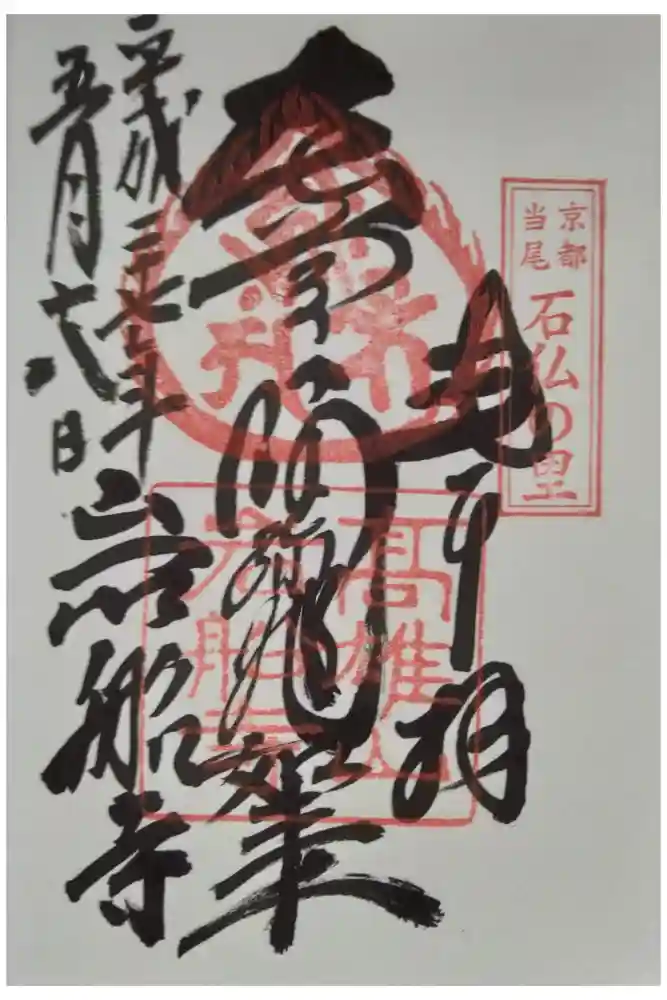 京都
当尾
石仏の里
奉拝
阿弥陀如来
高雄山
岩船寺
平成二十七年
五月十八日
岩船寺